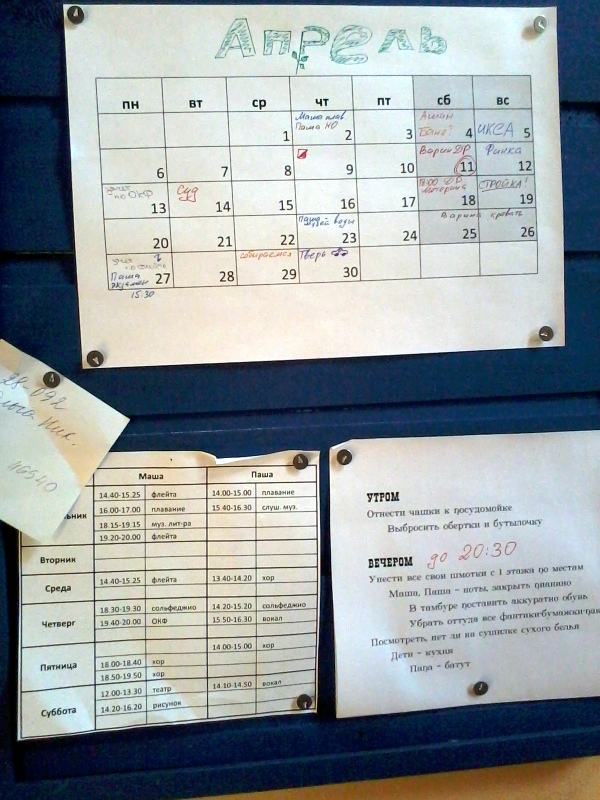 Апрель
пн вт ср чт пт сб вс
Маша плав.
Паша НО
Баня?
ИКСА
1 2 3 4 5
Вари ДР
Финка
6 7 8 9 10 11 12
по ОКФ
Суд
СТРОЙКА!
13 14 15 16 17 18 19
Паша
воды
Варина кровать
20 21 22 23 24 25 26
собираемся
Тверь
Паша
экзамен
27 28 29 30
15:30
28-092
Ник.
46540
Маша Паша
14.40-15.25 флейта 14.00-15.00 плавание
ьник 16.00-17.00 плавание 15.40-16.30 слуш. муз.
18.15-19.15 муз. лит-ра
19.20-20.00 флейта
Вторник
Среда 14.40-15.25 флейта 13.40-14.20 хор
Четверг 18.30-19.30 сольфеджио 14.20-15.20 сольфеджио
19.40-20.00 ОКФ 15.50-16.30 вокал
Пятница 14.00-15.00 хор
18.00-18.40 хор
18.50-19.50 хор
Суббота 12.00-13.30 театр 14.10-14.50 вокал
14.20-16.20 рисунок
УТРОМ
Отнести чашки к посудомойке
Выбросить обертки и бутылочку
ВЕЧЕРОМ до 20:30
Унести все свои шмотки с 1 этажа по местам
Маша, Паша - ноты, закрыть пианино
В тамбуре поставить аккуратно обувь
Убрать оттуда все фантики-бумажки-пак
Посмотреть, нет ли на сушилке сухого белья
Дети - кухня
Папа - батут